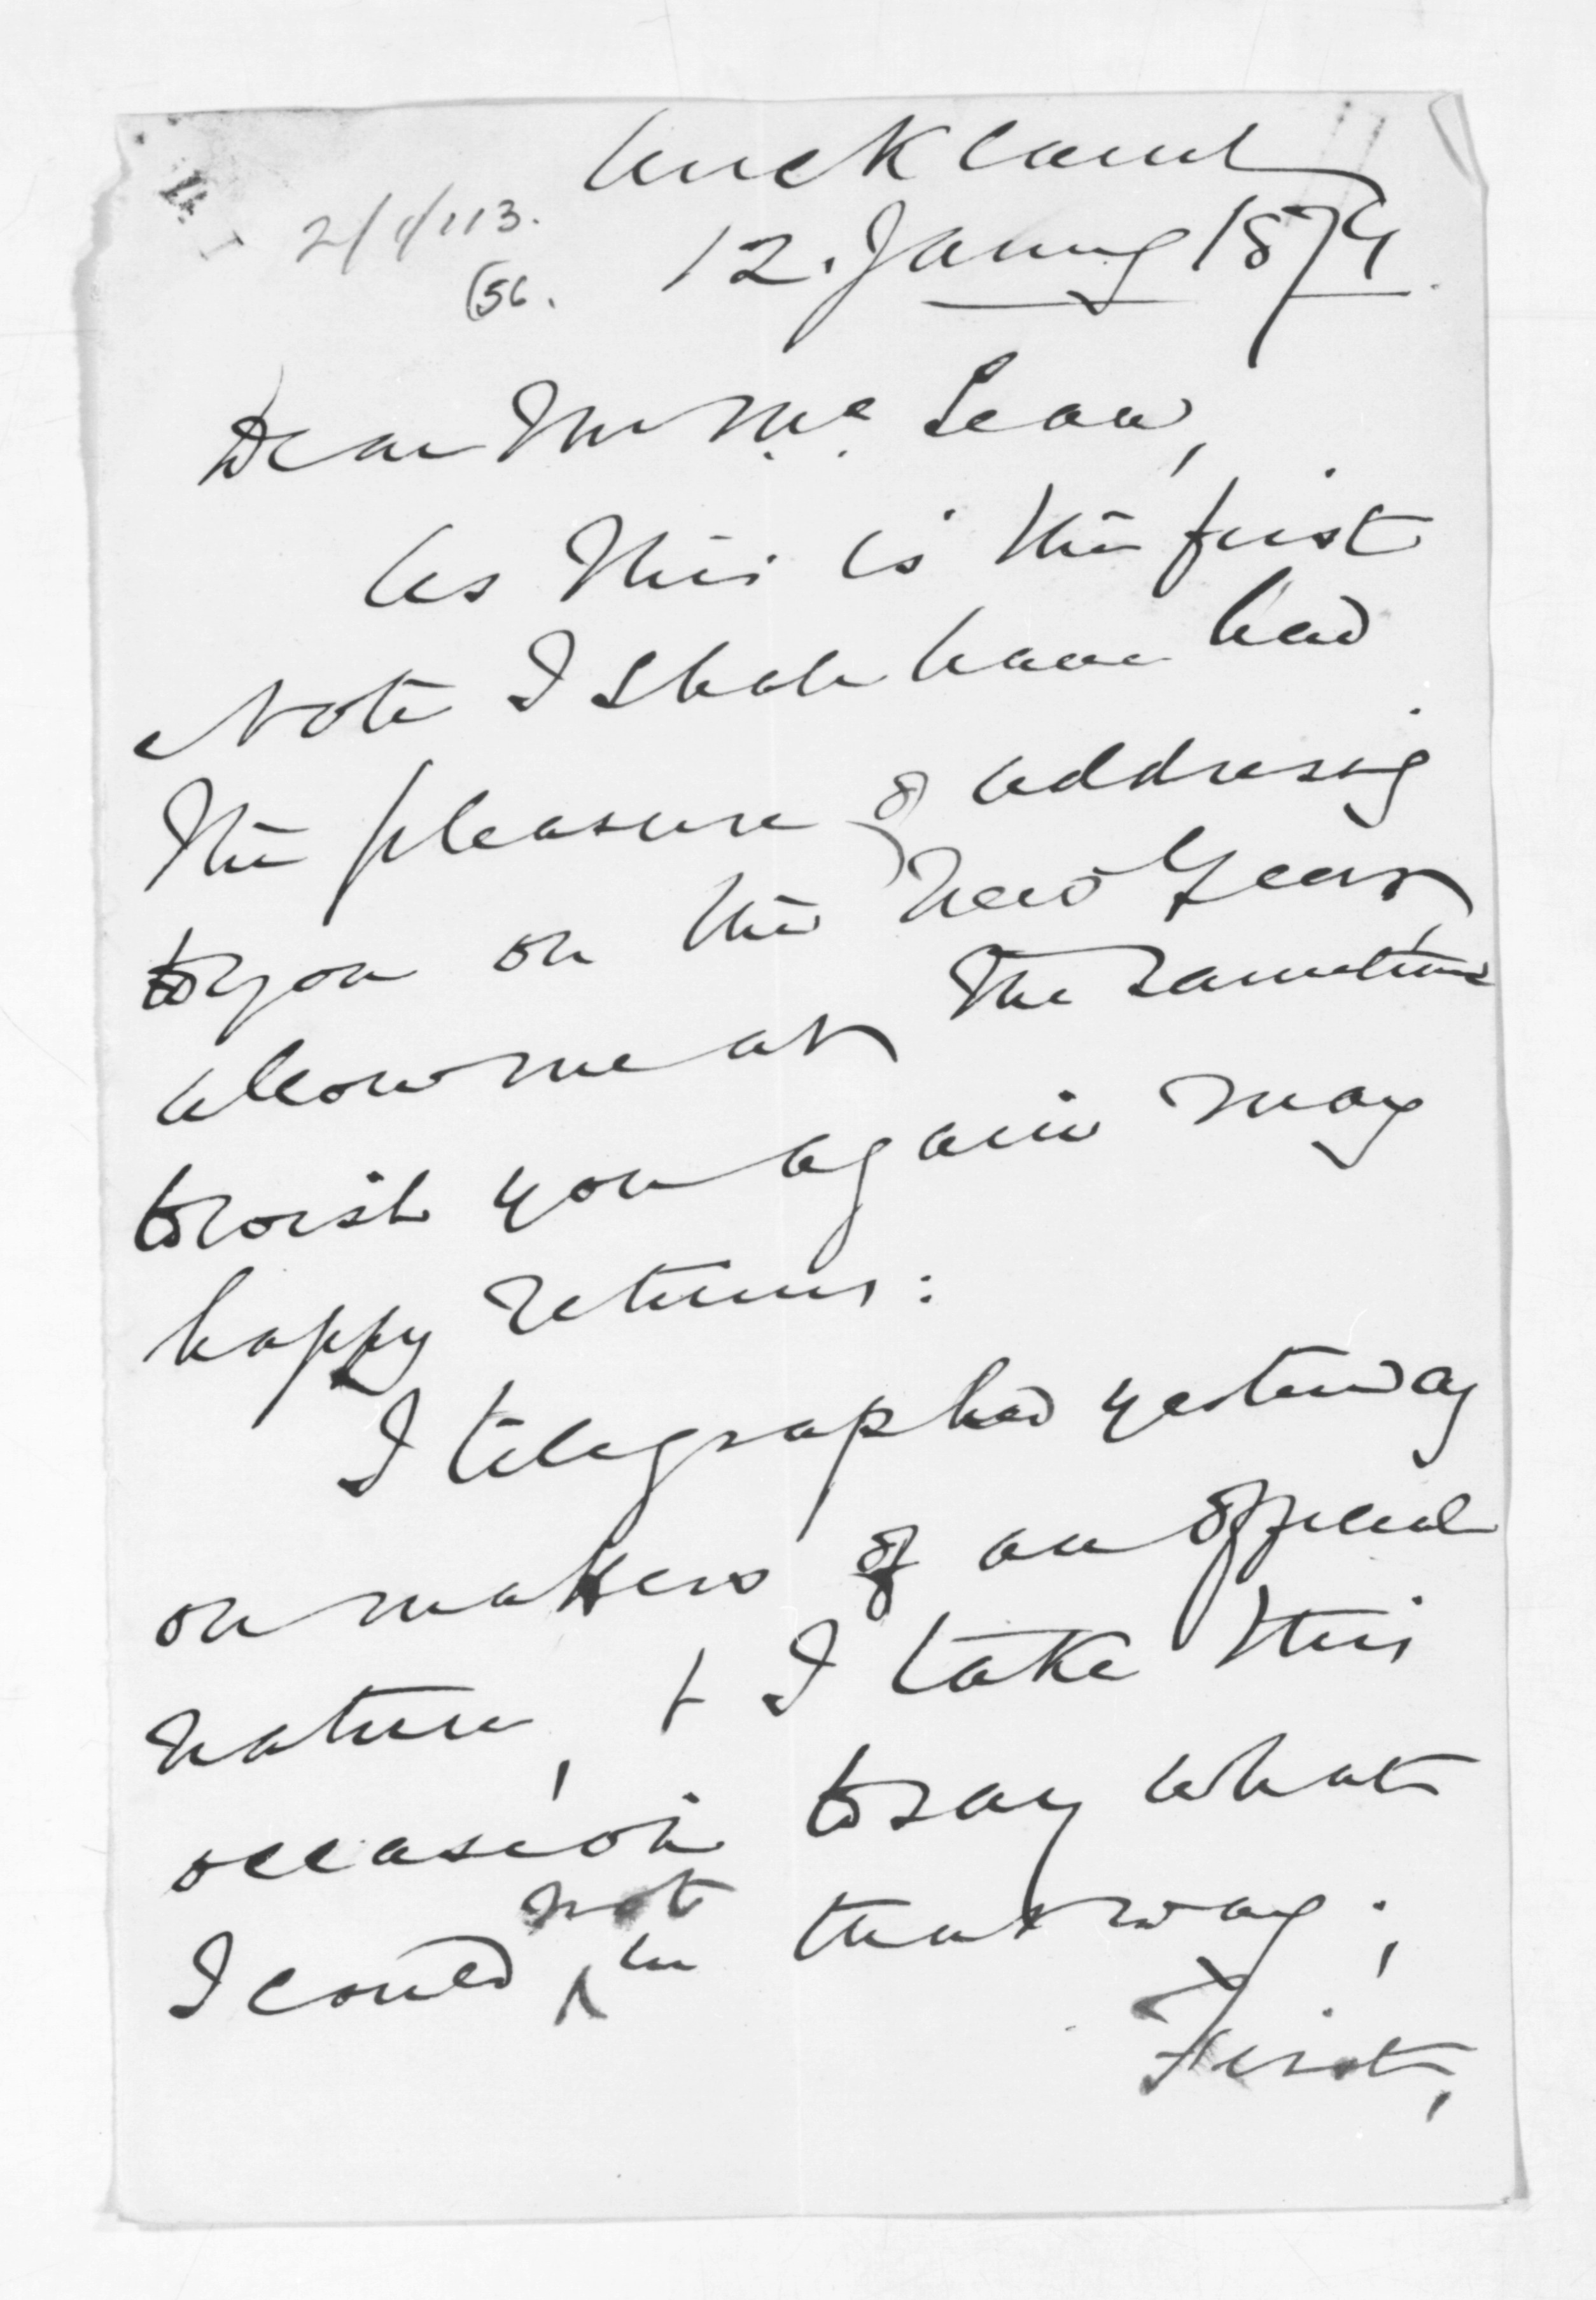 Auckland
2/1/113.
(56.
12. Janry 1874.
Dear Mr Mc. Lean,
As this is the first
Note I shall have had
the pleasure of addressing
to you in the New Year,
allow me at the same time
to wish you again many
happy returns:
I telegraphed yesterday
on matters of an official
nature, & I take this
occasion to say what
I could not in that way;
First,